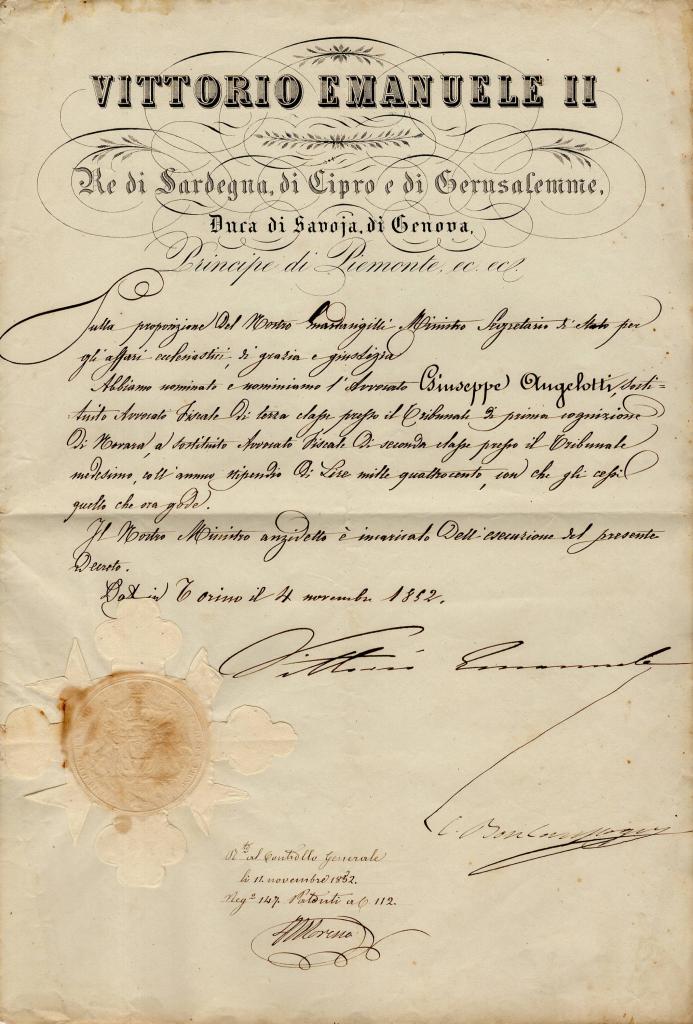 VITTORIO EMANUELE II
Re di Sardegna, di Cipro e di Gerusalemme,
Duca di Savoja, di Genova,
Principe di Piemonte, ec. ec.
Sulla proposizione Del Nostro Guardasigilli Ministro Segretario di Stato per
gli affari ecclesiastici, di grazia e giustizia
Abbiamo nominato e nominiamo l'Avvocato Giuseppe Angelotti, Sosti=
tuito Avvocato Fiscale Di terza classe presso il Tribunale di prima cognizione
Di Novara, a Sostituito Avvocato Fiscale Di seconda classe presso il Tribunale
medesimo, coll'annuo stipendio Di Lire mille quattrocento, con che gli cessi
quello che ora gode.
Il Nostro Ministro anzidetto è incaricato Dell'esecuzione del presente
Decreto.
Dat in Torino il 4 novembre 1852.
Vittorio Emanuele
C. Boncompagni
R.to al Controllo Generale
li 11 novembre 1852.
Reg.o 147. a C 112.
Moreno